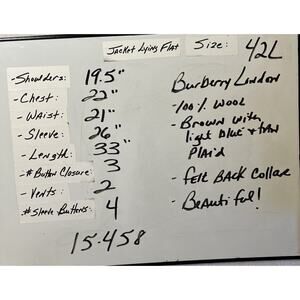 Jacket Lying Flat Size: 42L
- Shoulders: 19.5"
- Chest: 22"
- Waist: 21"
- Sleeve: 26"
- Length: 33"
- # Button Closure: 3
- Vents: 2
# Sleeve Buttons: 4
15-458
Burberry London
- 100% Wool
- Brown with
light blue + tan
Plaid
- Felt Back Collar
- Beautiful!